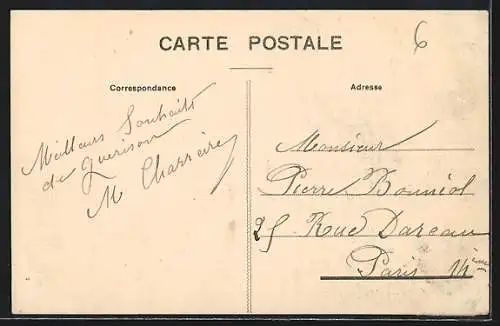 CARTE POSTALE
6
Correspondance
Adresse
Meilleurs Souhaits
de Guérison
M Charraire
Monsieur
Pierre Bonniol
25 Rue Dareau
Paris 14ème